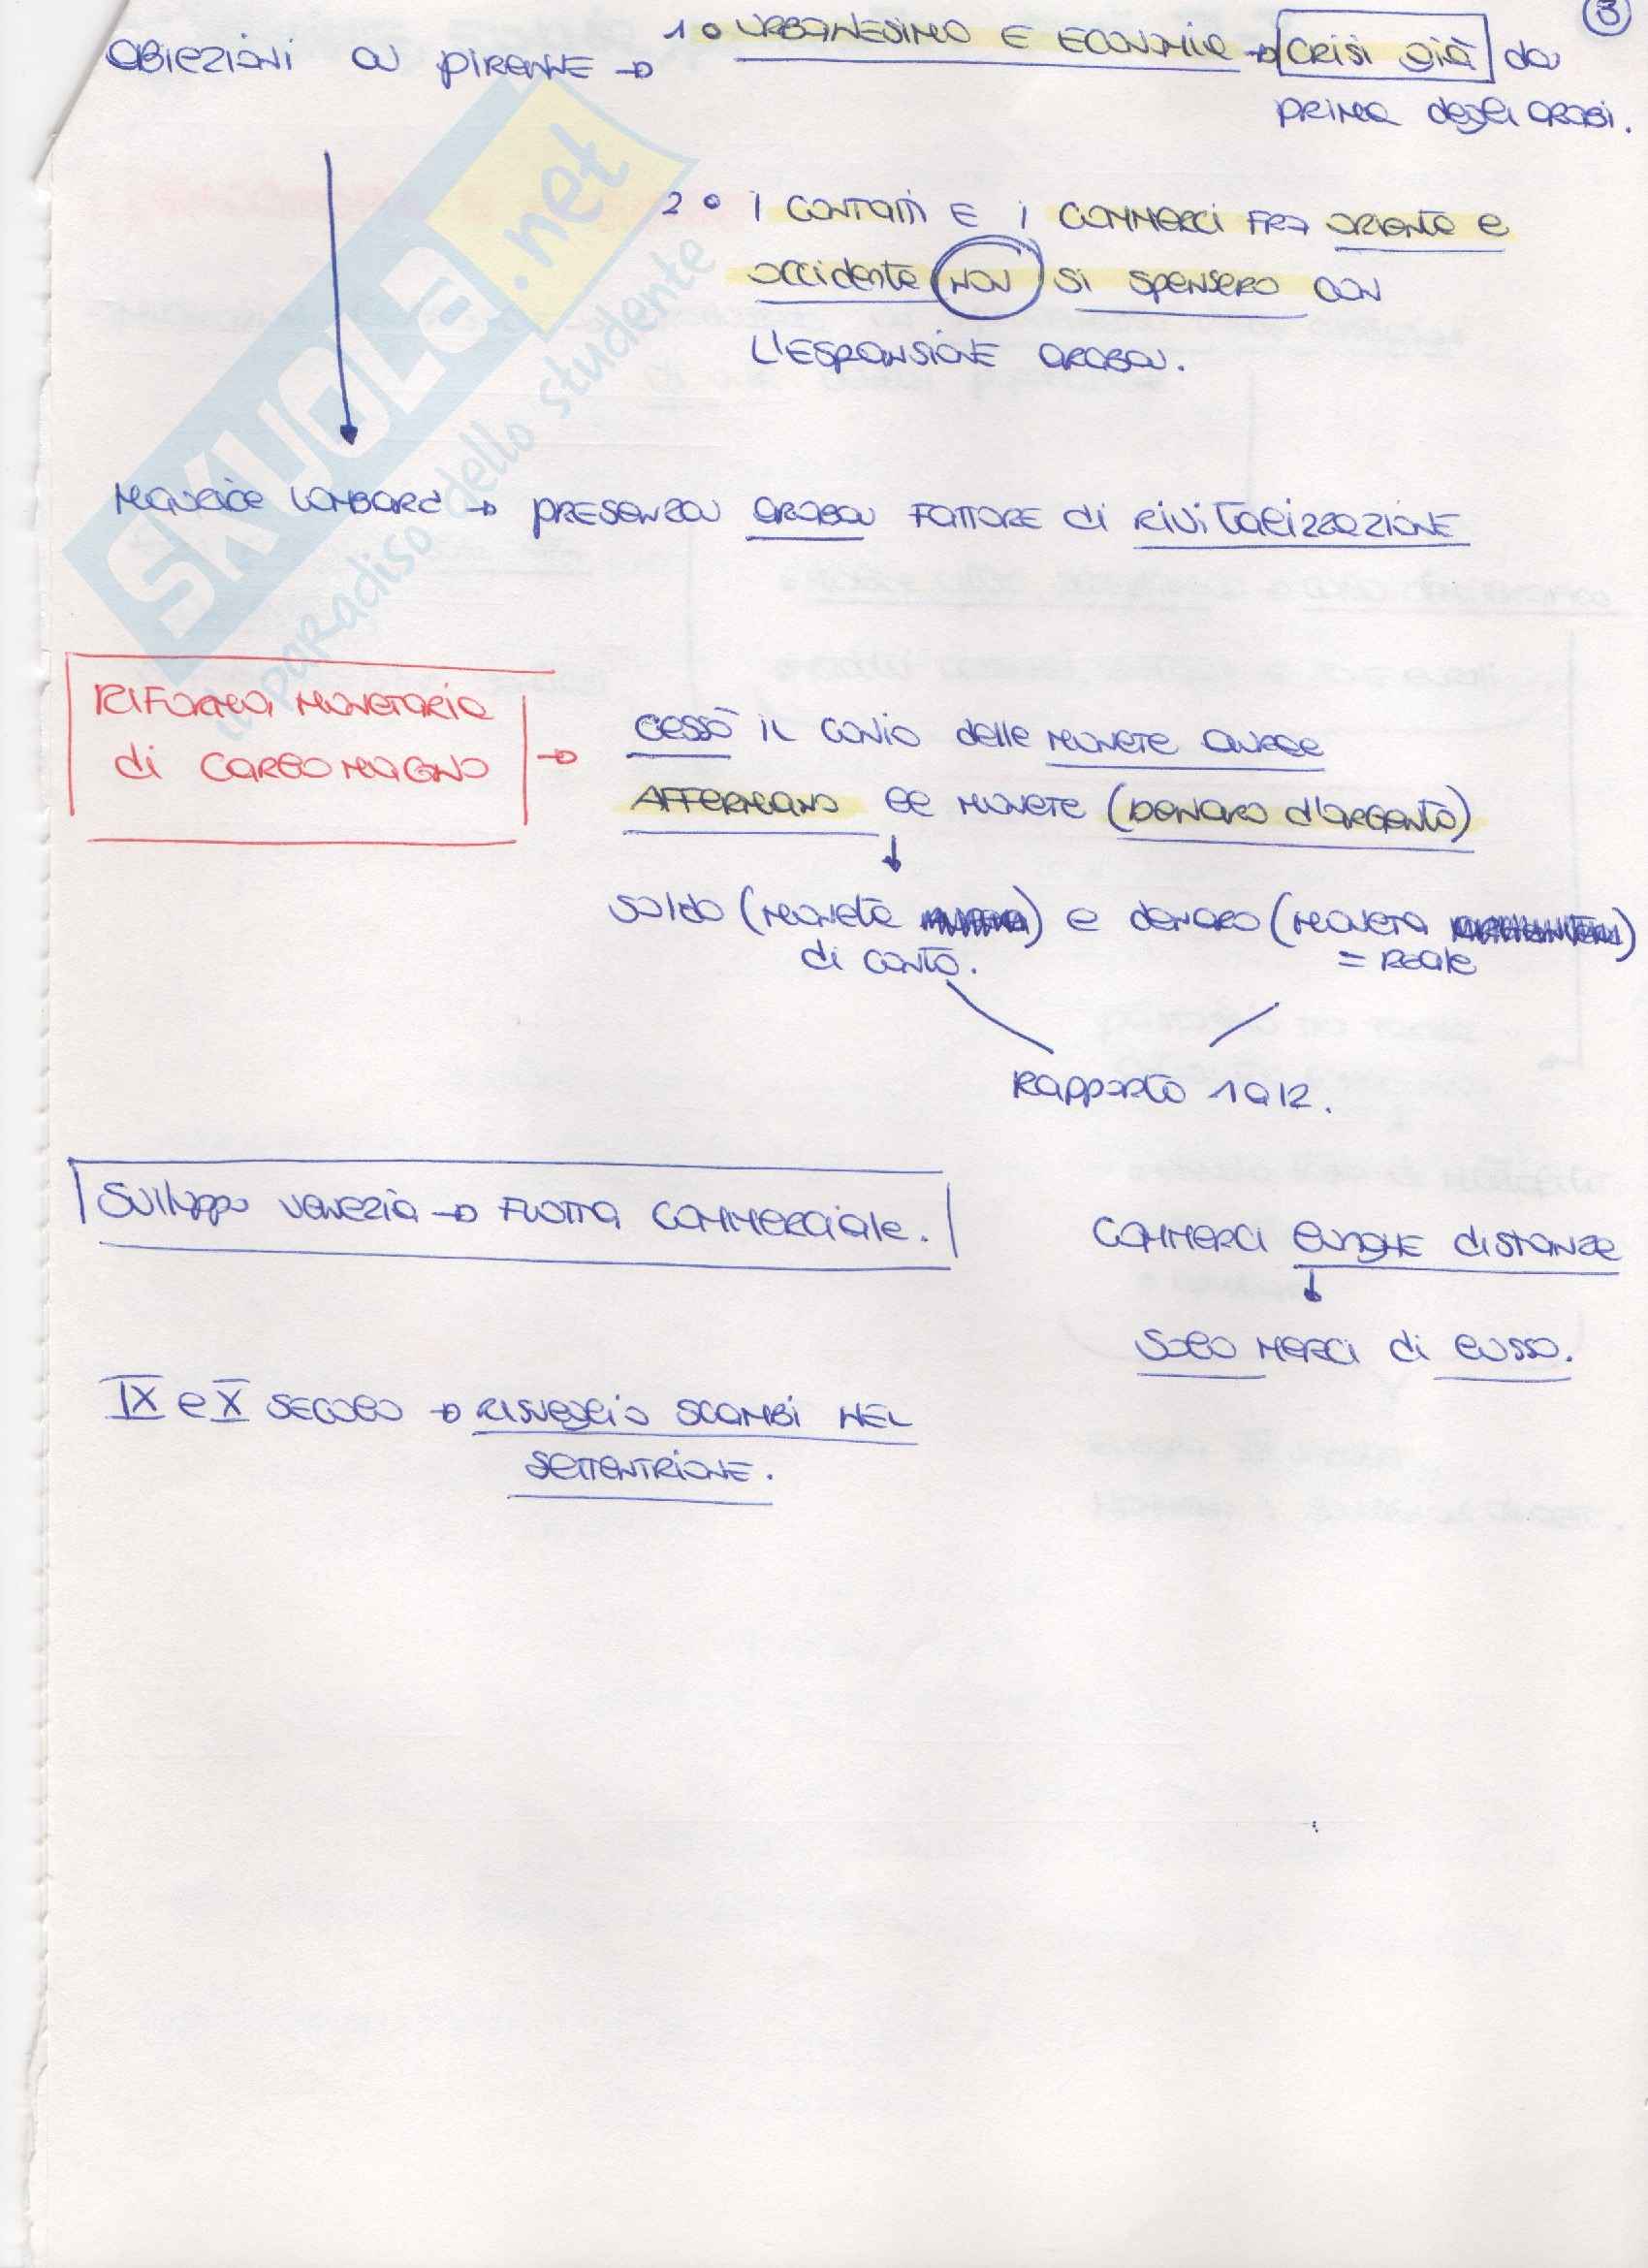 3
OBIEZIONI A PIRENNE → 1° URBANESIMO E ECONOMIA → CRISI già da
PRIMA degli ARABI.
2° I CONTATTI E I COMMERCI FRA ORIENTE e
OCCIDENTE NON SI SPENSERO CON
L'ESPANSIONE ARABA.
MAURICE LOMBARD → PRESENZA ARABA FATTORE di RIVITALIZZAZIONE
RIFORMA MONETARIA
di CARLO MAGNO →
CESSÒ IL CONIO delle MONETE AUREE
AFFERMANO LE MONETE (DENARO D'ARGENTO)
↓
SOLDO (MONETA) e DENARO (MONETA)
di CONTO. = REALE
RAPPORTO 1 a 12.
SVILUPPO VENEZIA → FLOTTA COMMERCIALE.
COMMERCI LUNGHE DISTANZE
↓
SOLO MERCI di LUSSO.
IX e X SECOLO → RISVEGLIO SCAMBI NEL
SETTENTRIONE.
SKUOLA.net
il paradiso dello studente